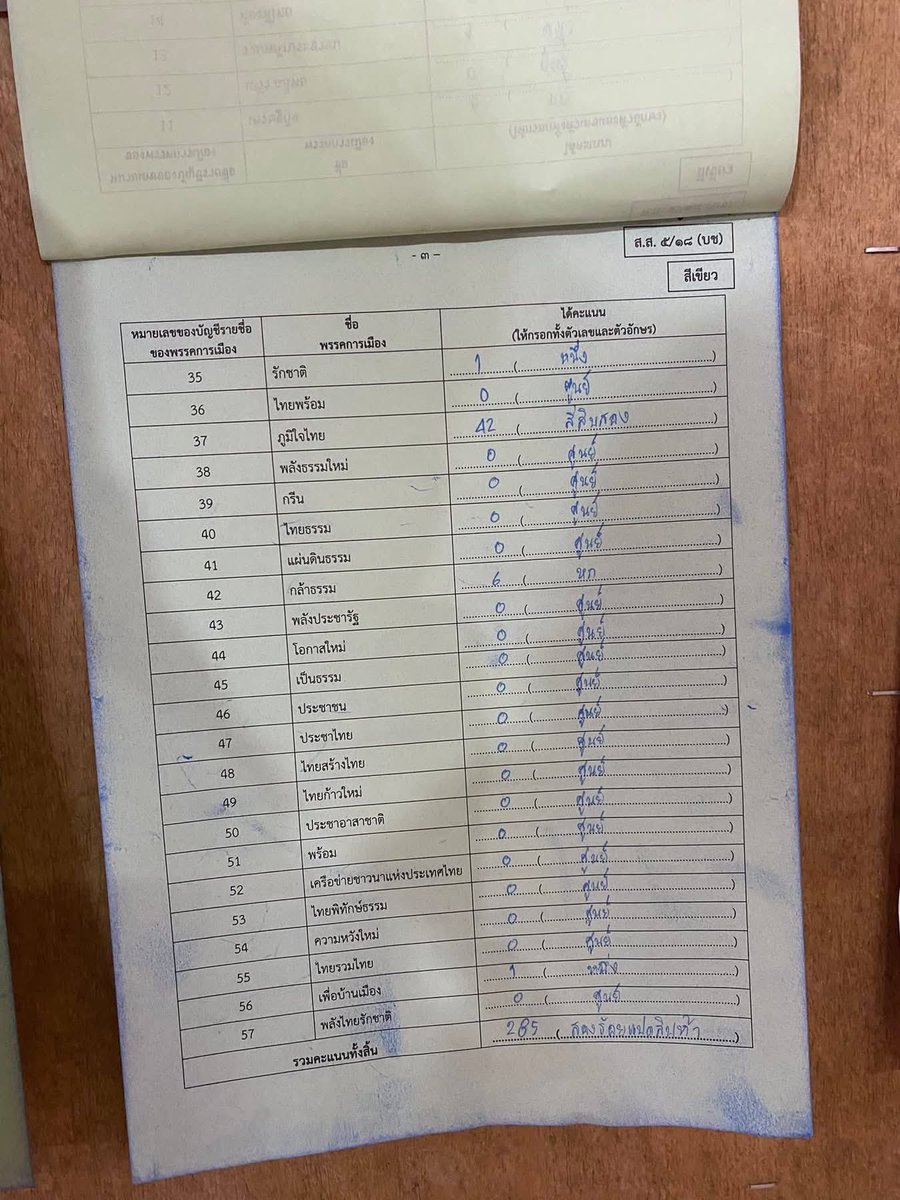 - ๓ –
ส.ส. ๕/๑๘ (บช)
สีเขียว
หมายเลขของบัญชีรายชื่อ ชื่อ ได้คะแนน
ของพรรคการเมือง พรรคการเมือง (ให้กรอกทั้งตัวเลขและตัวอักษร)
35 รักชาติ 1 (หนึ่ง)
36 ไทยพร้อม 0 (ศูนย์)
37 ภูมิใจไทย 42 (สี่สิบสอง)
38 พลังธรรมใหม่ 0 (ศูนย์)
39 กรีน 0 (ศูนย์)
40 ไทยธรรม 0 (ศูนย์)
41 แผ่นดินธรรม 0 (ศูนย์)
42 กล้าธรรม 6 (หก)
43 พลังประชารัฐ 0 (ศูนย์)
44 โอกาสใหม่ 0 (ศูนย์)
45 เป็นธรรม 0 (ศูนย์)
46 ประชาชน 0 (ศูนย์)
47 ประชาไทย 0 (ศูนย์)
48 ไทยสร้างไทย 0 (ศูนย์)
49 ไทยก้าวใหม่ 0 (ศูนย์)
50 ประชาอาสาชาติ 0 (ศูนย์)
51 พร้อม 0 (ศูนย์)
52 เครือข่ายชาวนาแห่งประเทศไทย 0 (ศูนย์)
53 ไทยพิทักษ์ธรรม 0 (ศูนย์)
54 ความหวังใหม่ 0 (ศูนย์)
55 ไทยรวมไทย 0 (ศูนย์)
56 เพื่อบ้านเมือง 1 (หนึ่ง)
57 พลังไทยรักชาติ 0 (ศูนย์)
รวมคะแนนทั้งสิ้น 285 (สองร้อยแปดสิบห้า)